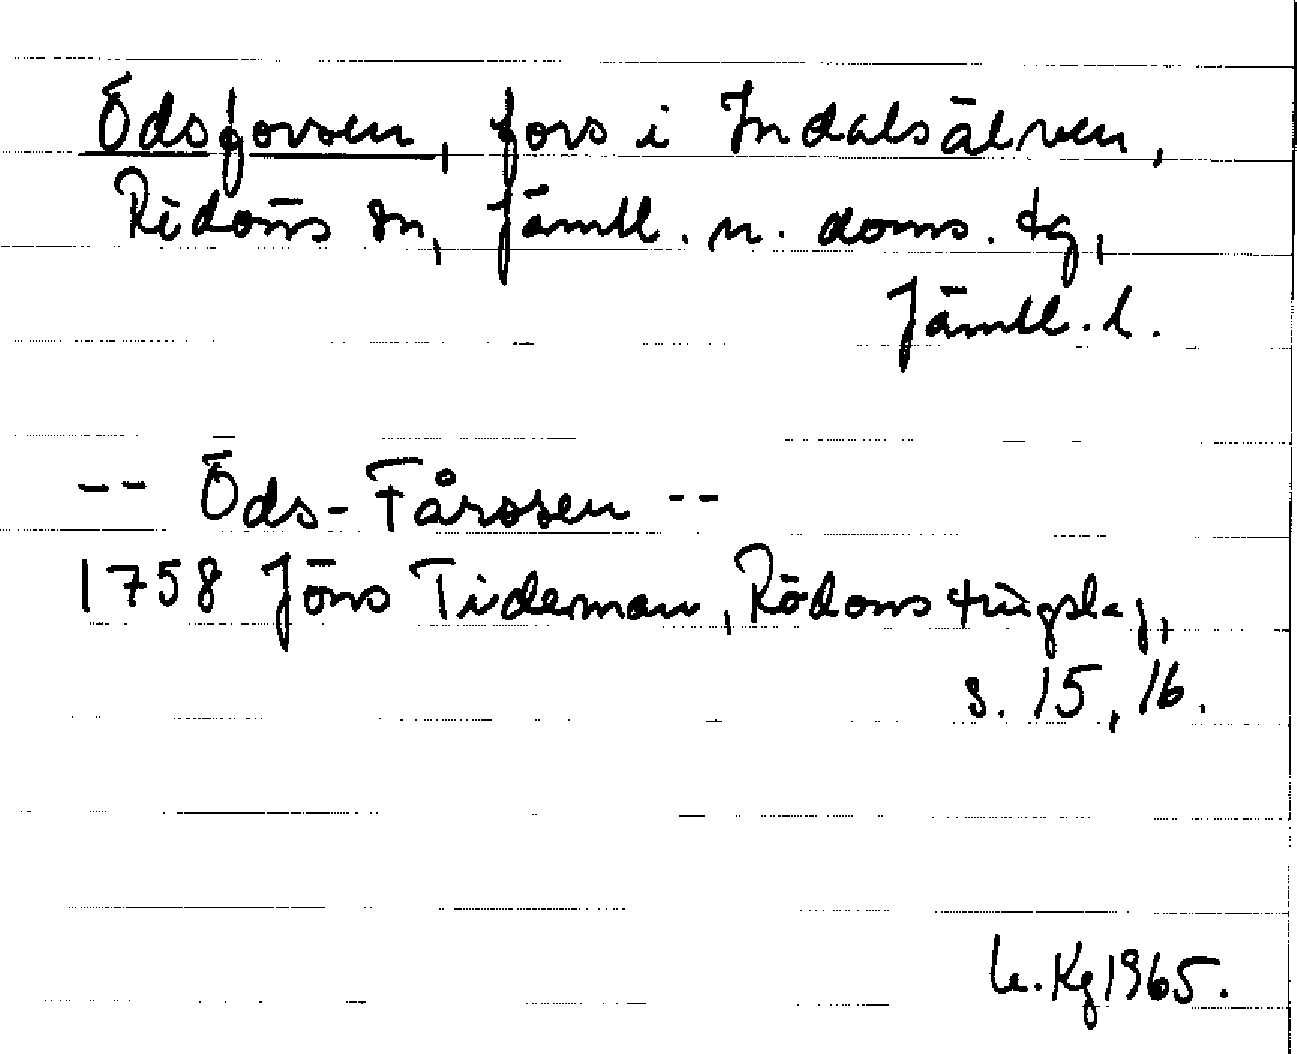 Ödsforsen, fors i Indalsälven,
Rödöns sn, Jämtl. n. doms. tg,
Jämtl. l.
-- Öds-Fårssen --
1758 Jöns Tideman, Rödöns tingslag,
s. 15, 16.
Kg 1965.